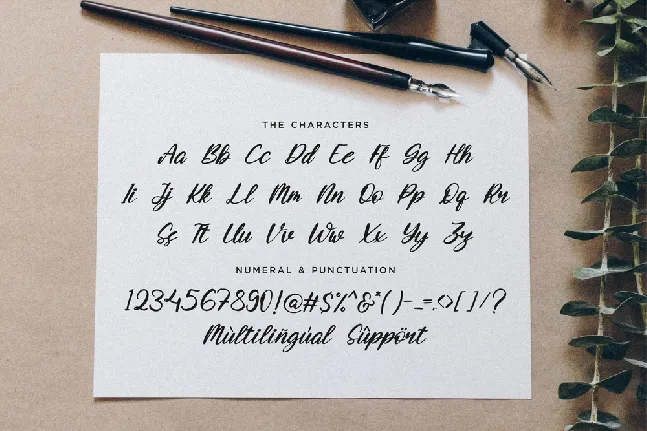 THE CHARACTERS
Aa Bb Cc Dd Ee Ff Gg Hh
Ii Jj Kk Ll Mm Nn Oo Pp Qq Rr
Ss Tt Uu Vv Ww Xx Yy Zz
NUMERAL & PUNCTUATION
1234567890!@#$%^&*()-_=:<>[]/?
Mùltilin̈gùal Sùppört